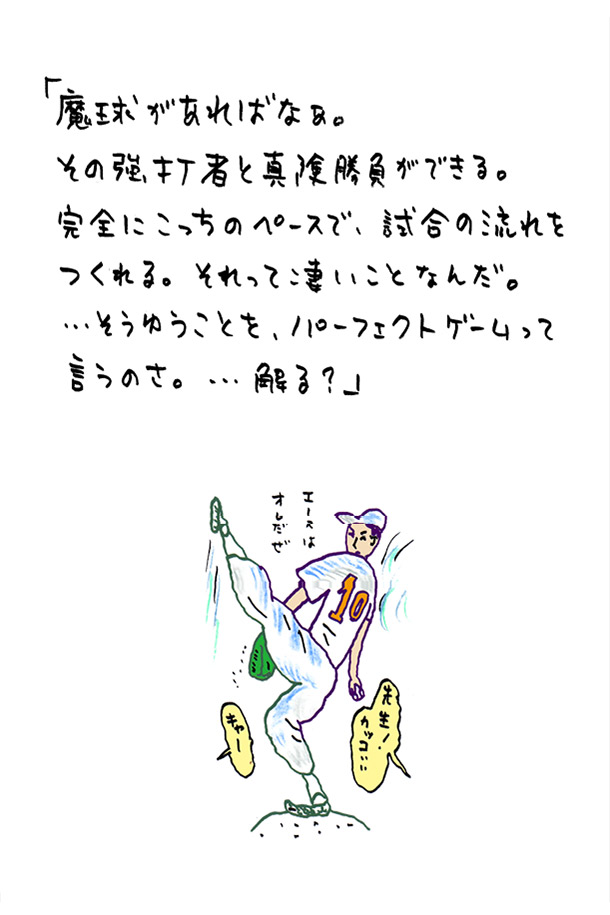 「魔球があればなぁ。
その強打者と真険勝負ができる。
完全にこっちのペースで、試合の流れを
つくれる。それって凄いことなんだ。
…そうゆうことを、パーフェクトゲームって
言うのさ。…解る？」
エースは
オレだぜ
10
先生！
カッコいい
キャー